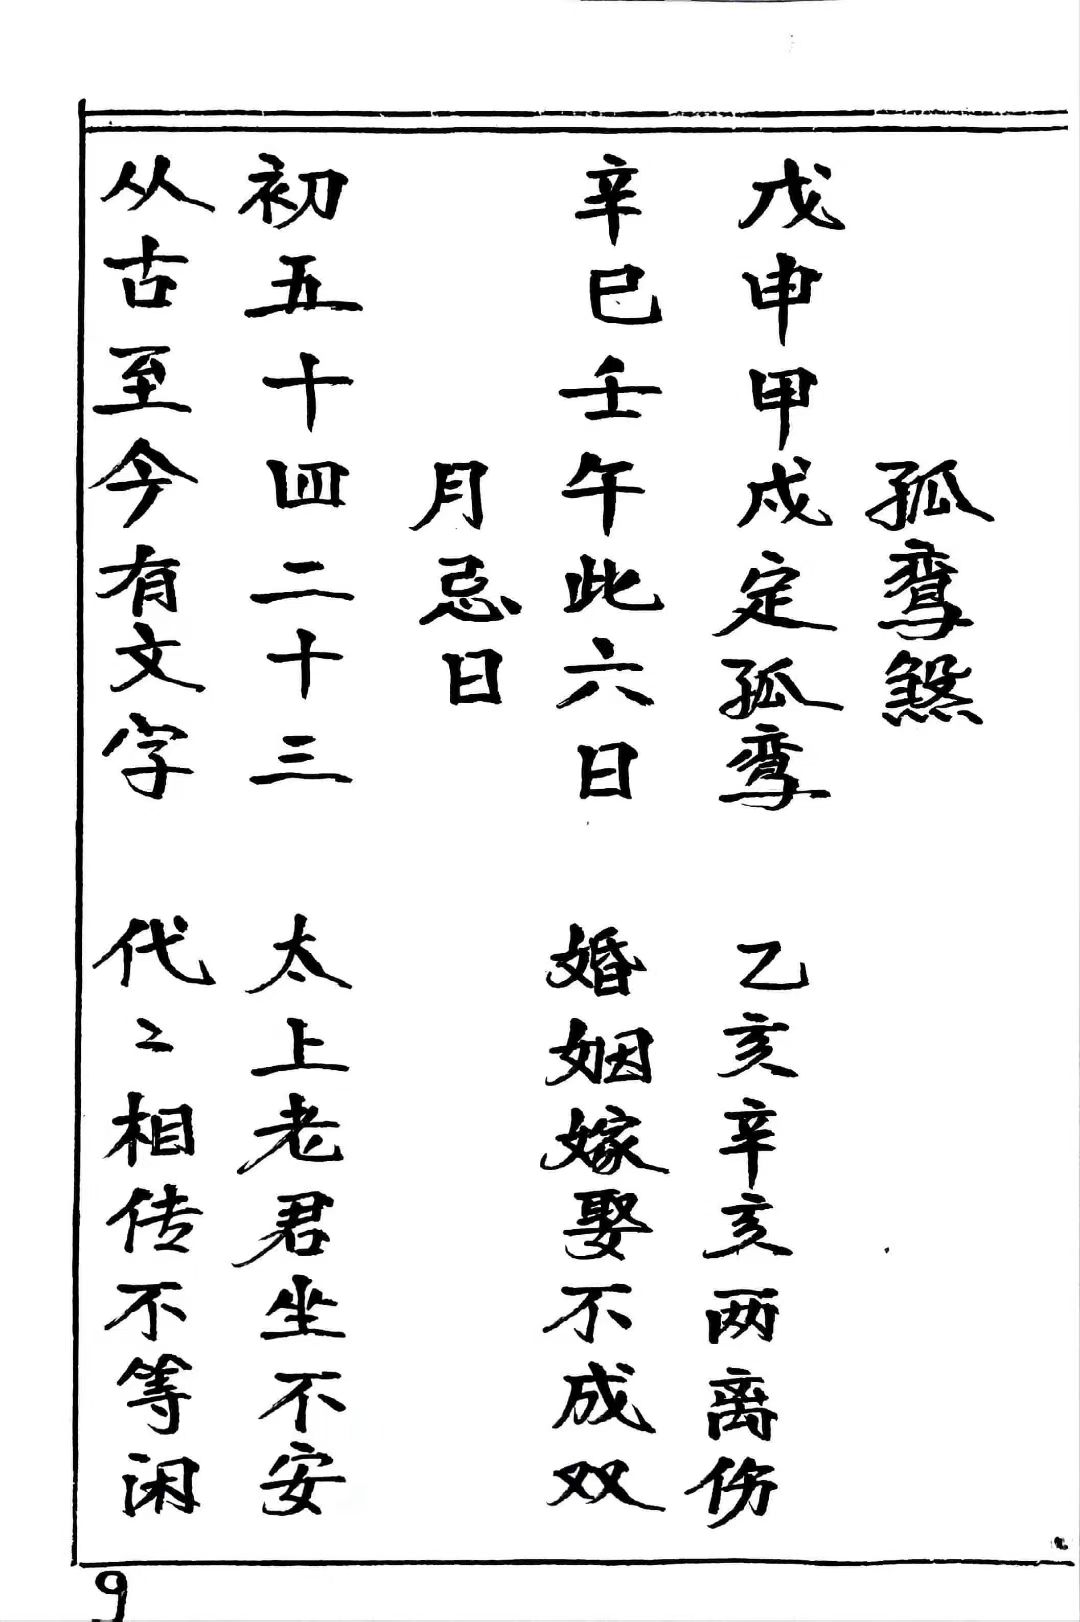 孤鸾煞
戊申甲戌定孤鸾 乙亥辛亥两离伤
辛巳壬午此六日 婚姻嫁娶不成双
月忌日
初五十四二十三 太上老君坐不安
从古至今有文字 代〻相传不等闲
9